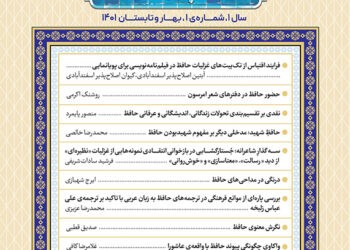 سال ۱، شماره‌ی ۱، بهار و تابستان ۱۴۰۱
فرایند اقتباس از تک‌بیت‌های غزلیات حافظ در فیلم‌نامه‌نویسی برای پویانمایی
آبتین اصلاح‌پذیر اسفندآبادی، کیوان اصلاح‌پذیر اسفندآبادی
حضور حافظ در دفترهای شعر امرسون
روشنک اکرمی
نقدی بر تقسیم‌بندی تحولات زندگانی، اندیشگانی و عرفانی حافظ
منصور پایمرد
حافظ شهید؛ مدخلی دیگر بر مفهوم شهید بودن حافظ
محمدرضا خالصی
سه گدار شاعرانه: جُستارگشایی در بازخوانی انتقادی نمونه‌هایی از غزلیات «نظیره‌ای»
از دید «رسالت»، «معناسازی» و «خوش‌روانی»
فرشید سادات‌شریفی
درنگی در مداحی‌های حافظ
ایرج شهبازی
بررسی پاره‌ای از موانع فرهنگی در ترجمه‌های حافظ به زبان عربی با تاکید بر ترجمه‌ی علی
عباس زلیخه
محمدرضا عزیزی
نگرش معنوی حافظ
صدیق قطبی
واکاوی چگونگی پیوند حافظ با واقعه‌ی عاشورا
غلامرضا کافی